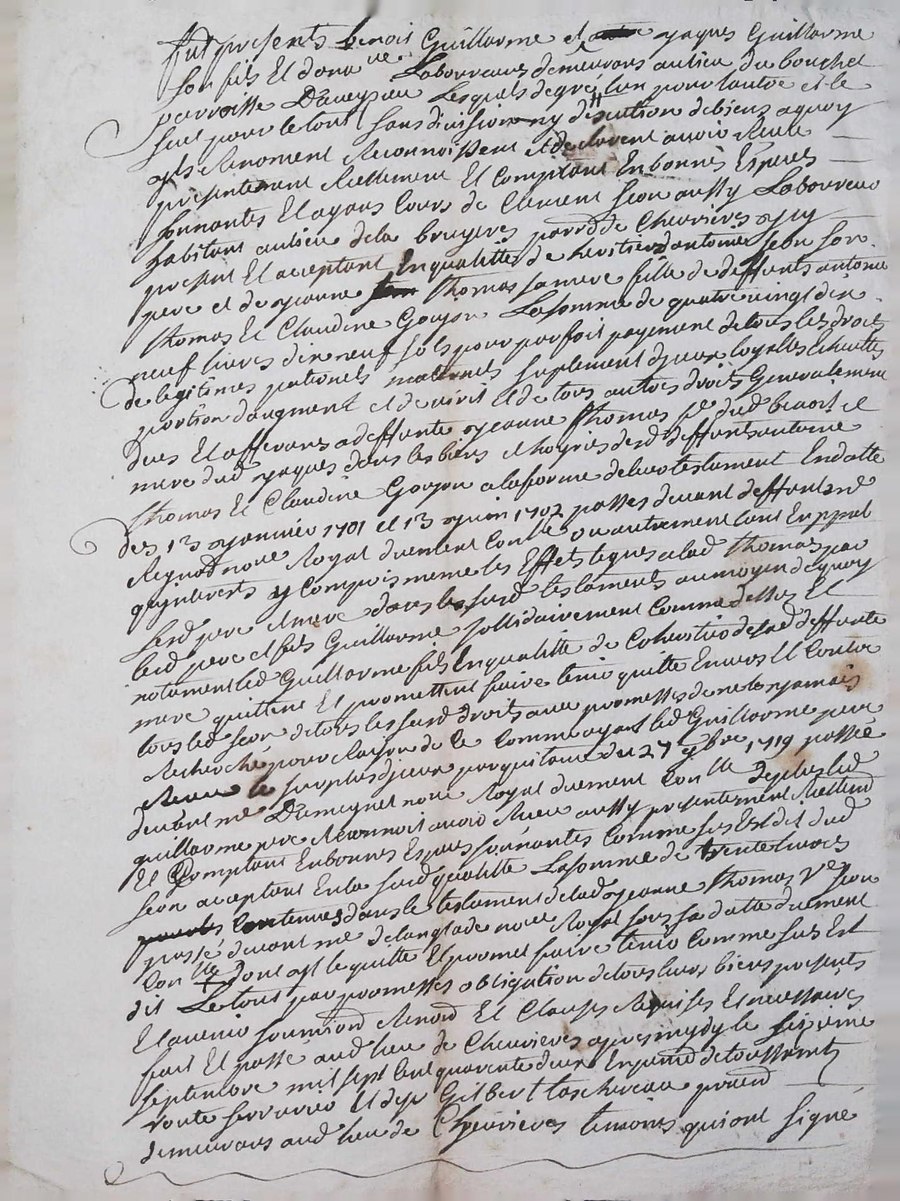 fut presents benoit Guillarme et jaques Guillarme
son fils Et dona.re Laboureurs demeurans au lieu du bouchet
parroisse D'aveyzieu Lesquels de gré lun pour lautre et le
seul pour le tout sans division ny discution de biens a quoy
ils Renoncent Reconnoissent et declarent avoir Receu
presentement Reellement Et Comptant En bonnes Especes
sonnantes Et ayans Cours de Clement Jean aussy Laboureur
habitant au lieu de la bruyere parr.e de Chevrieres icy
present Et aceptant En qualitté de heritier d'antoine Jean son
pere et de jeanne Thomas sa mere fille de deffunts antoine
Thomas Et Claudine Goujon La somme de quatre vingt dix
neuf livres dix neuf sols pour parfait payement de tous les droits
de legitimes paternels maternels suplement d'jceux loyalles echuttes
portion daugment et de viril et de tous autres droits Generalement
dues Et afferans a deffunte jeanne Thomas fe dud benoit et
mere dud jaques dans les biens et hoyries desd deffunts antoine
Thomas Et Claudine Goujon a la forme de leurs testament En datte
des 13 janvier 1701 et 13 juin 1702 passes devant deffunt me
Regnod no.re Royal duement Conllé ou autrement tant En ppal
qu'interets y Compris meme les Effets legues a lad Thomas par
sesd pere et mere dans lesusd testaments au moyen de quoy
lesd pere et fils Guillarme sollidairement Comme dessus Et
notament led Guillarme fils En qualitté de Coheritier de lad deffunte
mere quittent Et promettent faire tenir quitte Envers Et Contre
tous led Jean de tous les susd droits avec promesses de ne les jamais
Recherché pour Raison de Ce Comme ayant led Guillarme pere
Receu le surplus d'jceux par quittance du 27 9bre 1719 passée
devant me Dumaynet no.re Royal duement Conllé De plus led
guillarme pere Reconnois avoir Receu aussy presentement Reellemt
Et Comptant En bonnes Especes sonnantes Comme sus Est dit dud
Jean acceptant En la susd qualitté La somme de trente livres
Contenues dans le testament de lad jeanne Thomas Ve Jean
passé devant me delanglade no.re Royal sous sa datte duement
Conllé Dont il le quitte Et promet faire tenir Comme sus Est
dit Le tout par promesses obligation de tous leurs biens presents
Et avenir soumiond Renond Et Clauses Requises Et necessaires
fait Et passé aud lieu de Chevrieres apres mydy le sixieme
septembre mil sept Cent quarente deux En presence de toussaint
route serrurier Et de sr Gilbert Laschereau praticien
demeurans aud lieu de Chevrieres temoins qui ont signé